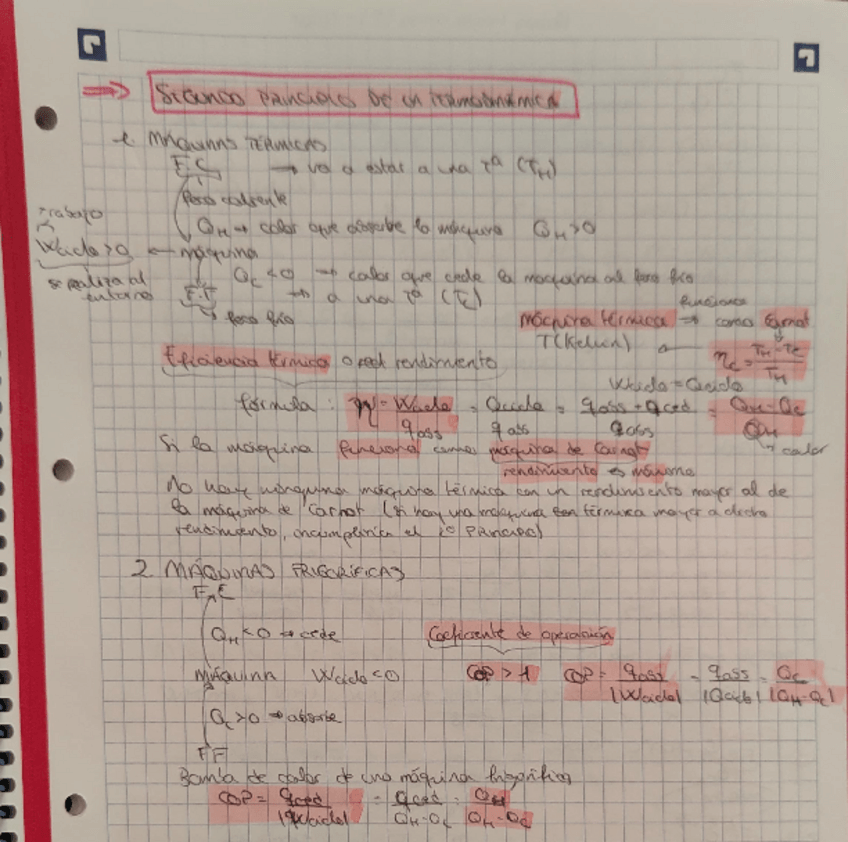 → SEGUNDO PRINCIPIO DE LA TERMODINÁMICA
1. MÁQUINAS TÉRMICAS
F.C → va a estar a una Tª (TH)
foco caliente
QH → calor que absorbe la máquina QH > 0
trabajo
Wciclo > 0 ← máquina
se realiza al entorno
QC < 0 → calor que cede la máquina al foco frío
F.F → a una Tª (TC)
foco frío
funciona
máquina térmica → como Carnot
T(Kelvin) ← ηC = TH - TC / TH
Eficiencia térmica o rendimiento
Wciclo = Qciclo
fórmula: η = Wciclo / qabs = Qciclo / qabs = qabs + qced / qabs = QH - QC / QH
→ calor
Si la máquina funciona como máquina de Carnot
rendimiento es máximo
No hay máquina térmica con un rendimiento mayor al de
la máquina de Carnot (si hay una máquina térmica mayor a dicho
rendimiento, incumpliría el 2º PRINCIPIO)
2. MÁQUINAS FRIGORÍFICAS
F.C
QH < 0 → cede
Coeficiente de operación
MÁQUINA Wciclo < 0 COP > 1 COP = qabs / |Wciclo| = qabs / |Qciclo| = QC / |QH - QC|
QC > 0 → absorbe
FF
Bomba de calor de una máquina frigorífica
COP = qced / |Wciclo| = qced / QH - QC = QH / QH - QC